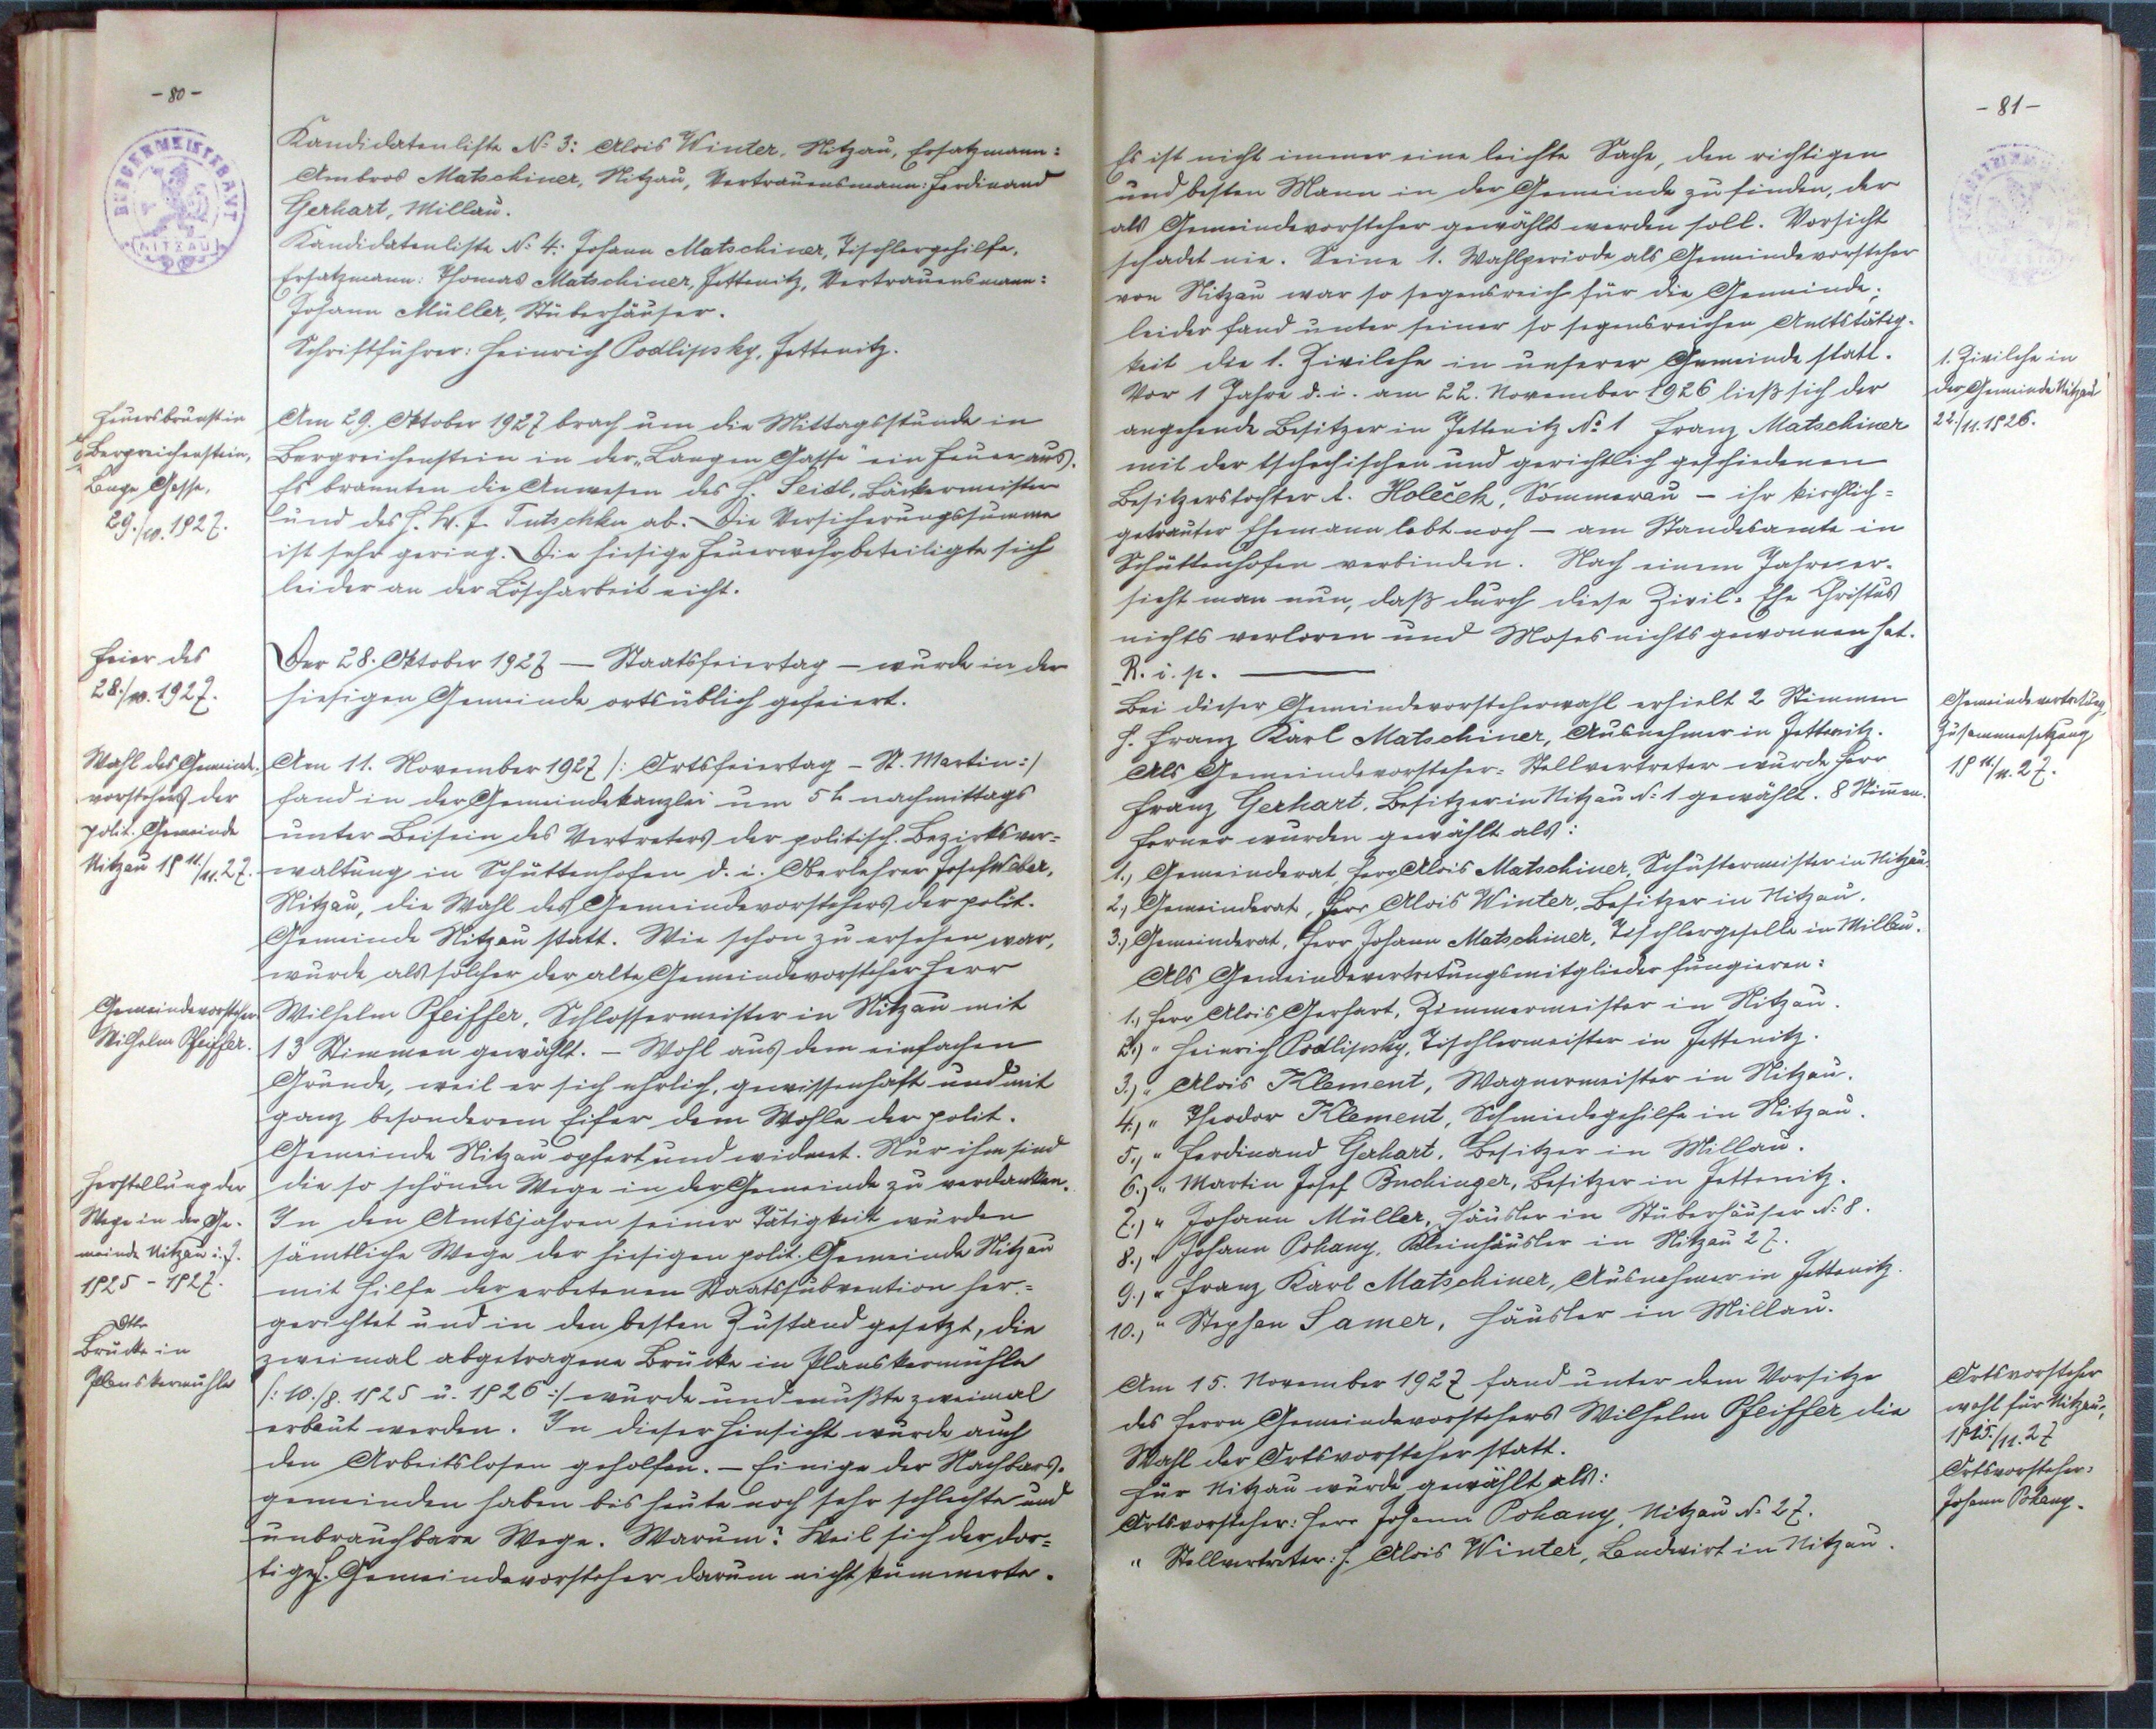 - 80 -
BÜRGERMEISTERAMT
NITZAU
Kandidatenliste No 3: Alois Winter, Nitzau, Ersatzmann:
Ambros Matschiner, Nitzau, Vertrauensmann: Ferdinand
Gerhart, Millau.
Kandidatenliste No 4: Johann Matschiner, Tischlergehilfe,
Ersatzmann: Thomas Matschiner, Jettenitz, Vertrauensmann:
Johann Müller, Stüberhäuser.
Schriftführer: Heinrich Podlipsky, Jettenitz.
Feuersbrunst in
Bergreichenstein,
Lange Gasse,
29./10. 1927.
Am 29. Oktober 1927 brach um die Mittagsstunde in
Bergreichenstein in der „Langen Gasse" ein Feuer aus.
Es brannten die Anwesen des H. Seidl, Bäckermeister
und des H. Tutschku ab. Die Versicherungssumme
ist sehr gering. Die hiesige Feuerwehr beteiligte sich
leider an der Löscharbeit nicht.
Feier des
28./10. 1927.
Der 28. Oktober 1927 — Staatsfeiertag — wurde in der
hiesigen Gemeinde ortsüblich gefeiert.
Wahl des Gemeinde-
vorstehers der
polit. Gemeinde
Nitzau 19 11./11. 27.
Am 11. November 1927 /: Ortsfeiertag - St. Martin :/
fand in der Gemeindekanzlei um 5 h nachmittags
unter Beisein des Vertreters der politisch. Bezirksver=
waltung in Schüttenhofen d. i. Oberlehrer Josef Weber,
Nitzau, die Wahl des Gemeindevorstehers der polit.
Gemeinde Nitzau statt. Wie schon zu ersehen war,
wurde als solcher der alte Gemeindevorsteher Herr
Gemeindevorsteher
Wilhelm Pfeiffer.
Wilhelm Pfeiffer, Schlossermeister in Nitzau mit
13 Stimmen gewählt. - Wohl aus dem einfachen
Grunde, weil er sich ehrlich, gewissenhaft und mit
ganz besonderem Eifer dem Wohle der polit.
Gemeinde Nitzau opfert und widmet. Nur ihm sind
Herstellung der
Wege in der Ge-
meinde Nitzau i. J.
1925 - 1927.
die so schönen Wege in der Gemeinde zu verdanken.
In den Amtsjahren seiner Tätigkeit wurden
sämtliche Wege der hiesigen polit. Gemeinde Nitzau
mit Hilfe der erbetenen Staatssubvention her-=
gerichtet und in den besten Zustand gesetzt, die
Brücke in
Planskermühle
zweimal abgetragene Brücke in Planskermühle
/: 10./8. 1925 u. 1926 :/ wurde und mußte zweimal
erbaut werden. In dieser Hinsicht wurde auch
den Arbeitslosen geholfen. — Einige der Nachbars-
gemeinden haben bis heute noch sehr schlechte und
unbrauchbare Wege. Warum? Weil sich der dor=
tige H. Gemeindevorsteher darum nicht kümmerte.
- 81 -
Es ist nicht immer eine leichte Sache, den richtigen
und besten Mann in der Gemeinde zu finden, der
als Gemeindevorsteher gewählt werden soll. Vorsicht
schadet nie. Seine 1. Wahlperiode als Gemeindevorsteher
von Nitzau war so segensreich für die Gemeinde;
leider fand unter seiner so segensreichen Amtstätig-
keit die 1. Zivilehe in unserer Gemeinde statt.
1. Zivilehe in
der Gemeinde Nitzau
22./11. 1926.
Vor 1 Jahre d. i. am 22. November 1926 ließ sich der
angehende Besitzer in Jettenitz No 1 Franz Matschiner
mit der tschechischen und gerichtlich geschiedenen
Besitzerstochter A. Holeček, Sommerau — ihr kirchlich=
getrauter Ehemann lebt noch — am Standesamte in
Schüttenhofen verbinden. Nach einem Jahre er-
sieht man nun, daß durch diese Zivil-Ehe Christus
nichts verloren und Moses nichts gewonnen hat.
R. i. p. —
Bei dieser Gemeindevorsteherwahl erhielt 2 Stimmen
Gemeindevertretung,
Zusammensetzung
19 11./11. 27.
H. Franz Karl Matschiner, Ausnehmer in Jettenitz.
Als Gemeindevorsteher-Stellvertreter wurde Herr
Franz Gerhart, Besitzer in Nitzau No 1 gewählt. 8 Stimmen.
Ferner wurden gewählt als:
1., Gemeinderat, Herr Alois Matschiner, Schustermeister in Nitzau.
2., Gemeinderat, Herr Alois Winter, Besitzer in Nitzau.
3., Gemeinderat, Herr Johann Matschiner, Tischlergeselle in Millau.
Als Gemeindevertretungsmitglieder fungieren:
1., Herr Alois Gerhart, Zimmermeister in Nitzau.
2.) " Heinrich Podlipsky, Tischlermeister in Jettenitz.
3.) " Alois Klement, Wagnermeister in Nitzau.
4.) " Theodor Klement, Schmiedegehilfe in Nitzau.
5., " Ferdinand Gerhart, Besitzer in Millau.
6.) " Martin Josef Buchinger, Besitzer in Jettenitz.
7.) " Johann Müller, Häusler in Stüberhäuser No 8.
8., " Johann Pohany, Kleinhäusler in Nitzau 27.
9., " Franz Karl Matschiner, Ausnehmer in Jettenitz.
10., " Stephan Samer, Häusler in Millau.
Am 15. November 1927 fand unter dem Vorsitze
Ortsvorsteher
wahl für Nitzau,
19 15./11. 27
Ortsvorsteher:
Johann Pohany.
des Herrn Gemeindevorstehers Wilhelm Pfeiffer die
Wahl der Ortsvorsteher statt.
Für Nitzau wurde gewählt als:
Ortsvorsteher: Herr Johann Pohany, Nitzau No 27.
" Stellvertreter: H. Alois Winter, Landwirt in Nitzau.